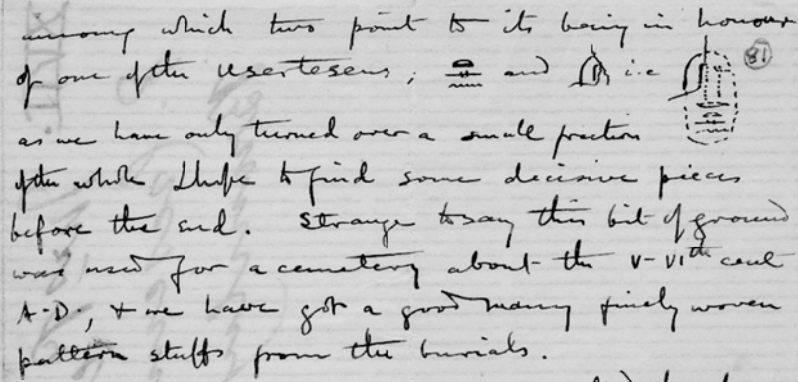 among which two point to its being in honour
of one of the Usertesens; and i.e 81
as we have only turned over a small fraction
of the whole I hope to find some decisive pieces
before the end. Strange to say this bit of ground
was used for a cemetery about the V-VIth cent
A.D., & we have got a good many finely woven
pattern stuffs from the burials.